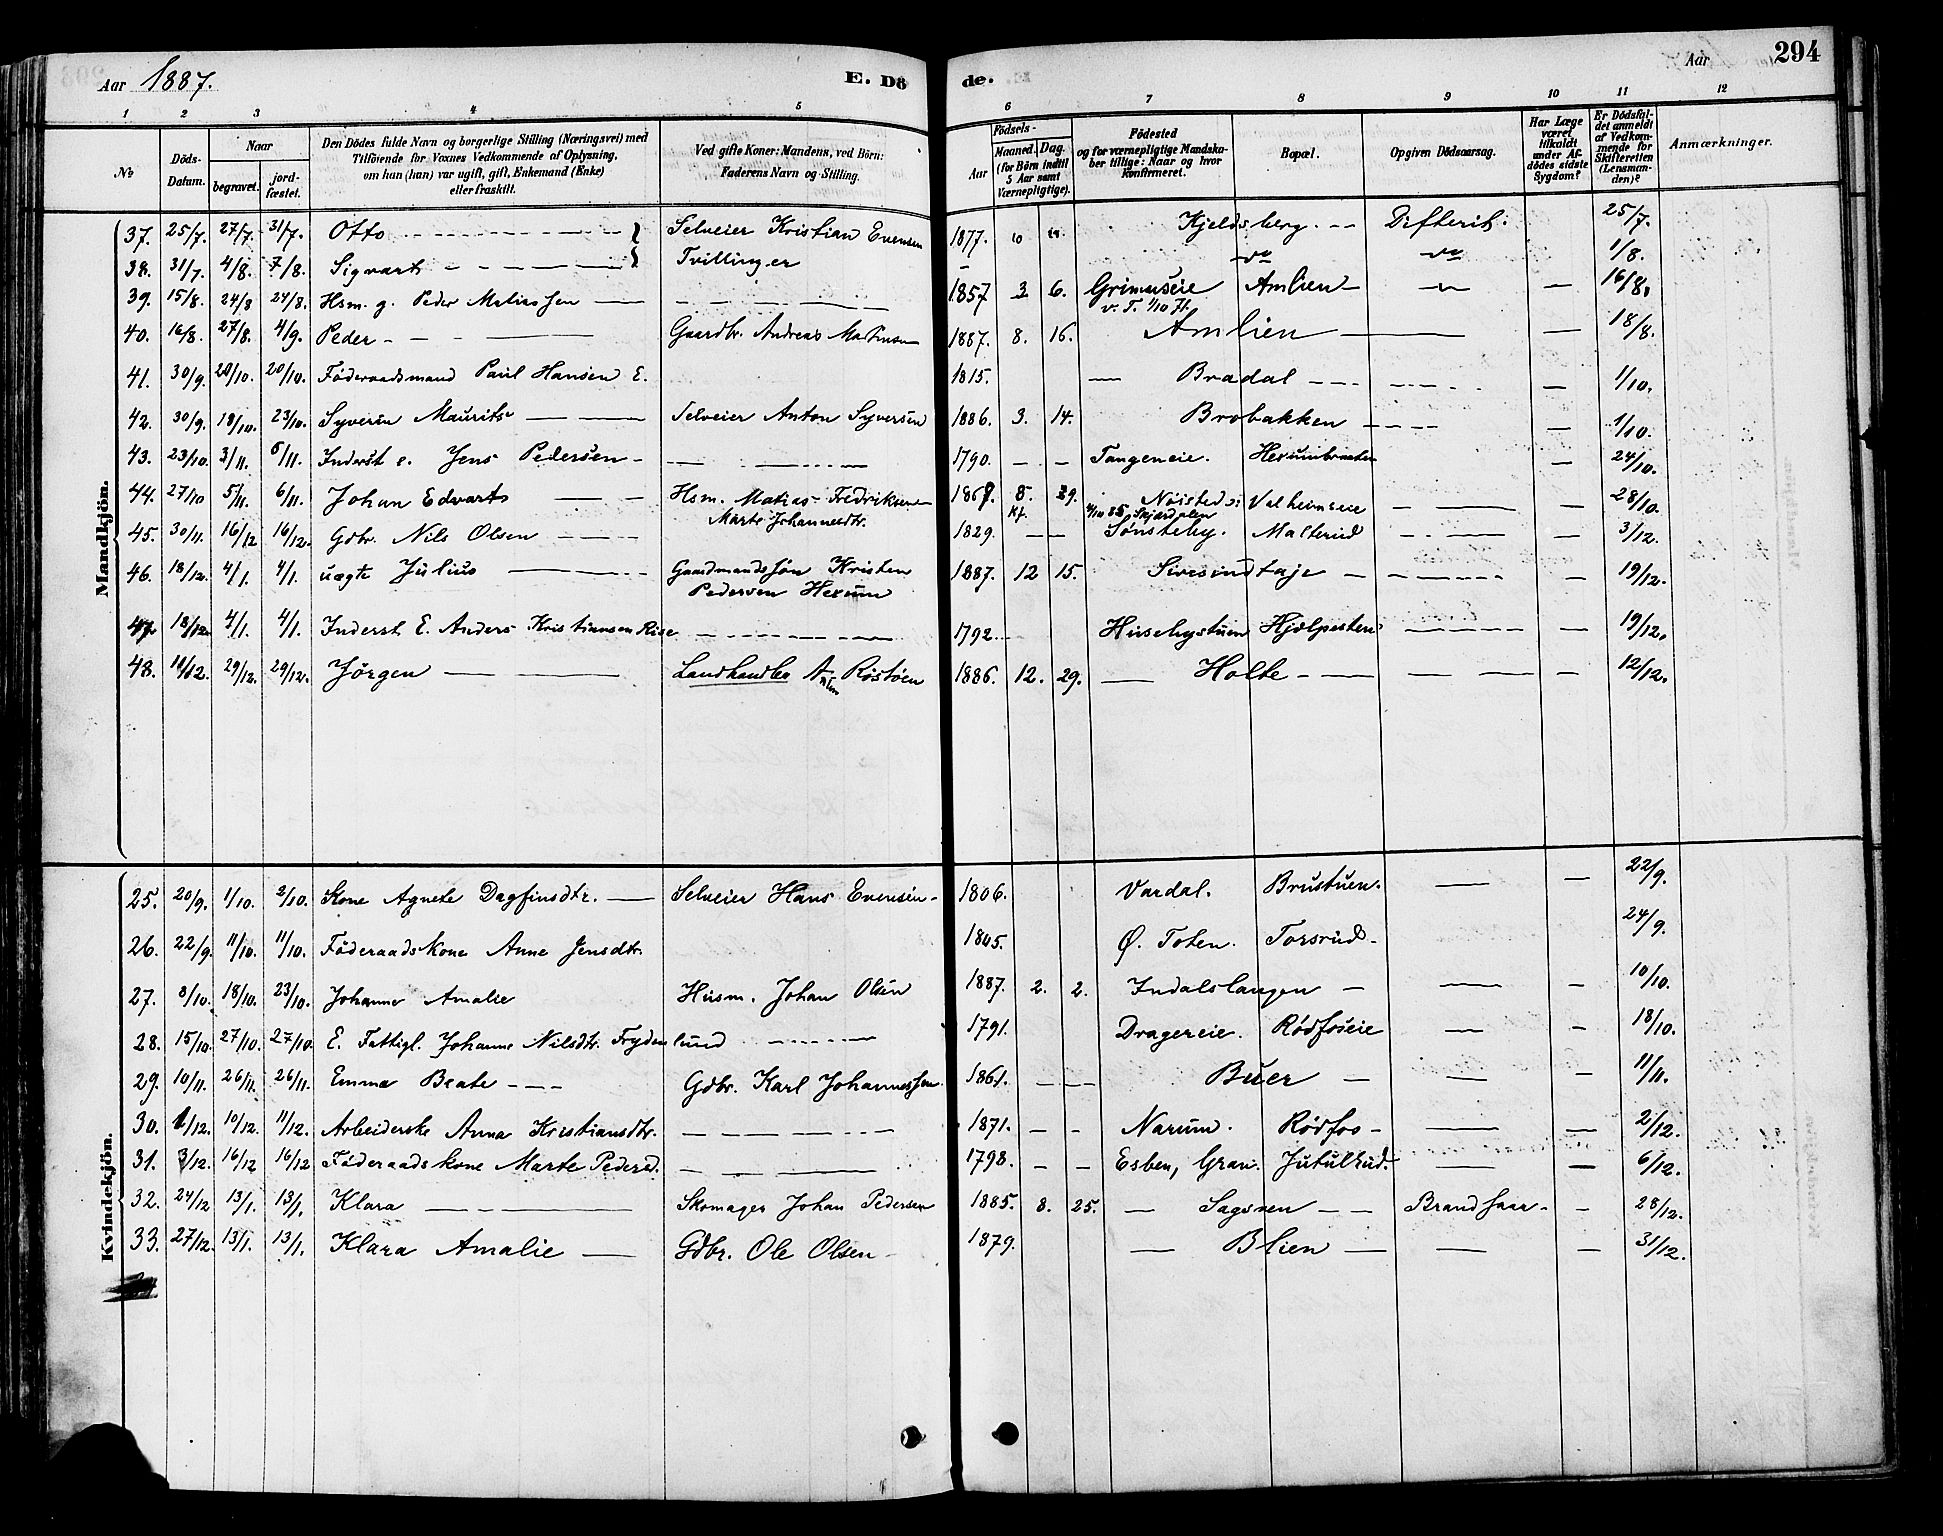 Aar 1887.
E. Dö
de.
Aar
294
1 2 3 4 5 6 7 8 9 10 11 12
№
Döds-Datum.
Naar
begravet.
jord-fæstet.
Den Dödes fulde Navn og borgerlige Stilling (Næringsvei) med Tilföiende for Voxnes Vedkommende af Oplysning, om han (hun) var ugift, gift, Enkemand (Enke) eller fraskilt.
Ved gifte Koner: Mandens, ved Börn: Faderens Navn og Stilling.
Födsels-
Aar
Maaned. Dag.
(for Börn indtil 5 Aar samt Værnepligtige).
Födested og for værnepligtige Mandskaber tillige: Naar og hvor Konfirmeret.
Bopæl.
Opgiven Dödsaarsag.
Har Læge været tilkaldt under Afdödes sidste Sygdom?
Er Dödsfaldet anmeldt af Vedkommende for Skifteretten (Lensmanden)?
Anmærkninger.
Mandkjön.
37. 25/7. 27/7. 31/7. Otto Selveier Kristian Evensen 1877. Kjeldsberg. Difterit. 25/7.
38. 31/7. 4/8. 7/8. Sigvart Tvillinger do do 1/8.
39. 15/8. 24/8 24/8. Hsm. g. Peder Matiassen 1857 3 6. Grimuseie Amlien 16/8.
v. T. 1/10 71.
40. 16/8. 27/8. 4/9. Peder Gaardbr. Andreas Martinsen 1887. 8. 16. Amlien 18/8.
41. 30/9. 20/10. 20/10. Föderaadsmand Paul Hansen E. 1815. Bradal 1/10.
42. 30/9. 18/10. 23/10. Syverin Maurits Selveier Anton Syversen 1886. 3. 14. Brobakken 1/10.
43. 23/10. 3/11. 6/11. Inderst e. Jens Pedersen 1790. Tangeneie. Hexumbraaten 24/10.
44. 27/10 5/11. 6/11. Johan Edvarts Hsm. Matias Fredriksen 8. 29. Nöisted Valheimseie 28/10.
Marte Johannesdtr. Kf. 4/10 85 Skjærdalen
45. 30/11. 16/12 16/12. Gdbr. Nils Olsen 1829. Sönsteby. Malterud 3/12.
46. 18/12. 4/1. 4/1. uægte Julius Gaardmandssön Kristen 1887. 12 15. Sivesindtaje 19/12.
Pedersen Hexum
47. 18/12. 4/1. 4/1. Inderst E. Anders Kristiansen Rise 1792. Husebystuen Hjælpesten 19/12.
48. 10/12. 29/12. 29/12. Jörgen Landhandler A. Röstöen 1886. 12. 29. Holte 12/12.
Kvindekjön.
25. 20/9. 1/10. 2/10. Kone Agnete Dagfinsdtr. Selveier Hans Evensen 1806. Vardal. Brustuen. 22/9.
26. 22/9. 11/10. 11/10. Föderaadskone Anne Jensdtr. 1845. Ø. Toten. Torsrud 24/9.
27. 8/10. 18/10. 23/10. Johanne Amalie Husm. Johan Olsen 1887. 2. 2. Indalslangen 10/10.
28. 15/10. 27/10. 27/10. E. Fattigl. Johanne Nilsdtr. Frydenlund 1791. Dragereie. Rödfoseie 18/10.
29. 10/11. 26/11. 26/11. Emma Beate Gdbr. Karl Johannessen 1861. Buer 11/11.
30. 1/12. 10/12. 11/12. Arbeiderske Anna Kristiansdtr. 1871. Narum. Rödfos 2/12.
31. 3/12. 16/12 16/12 Föderaadskone Marte Pedersd. 1798. Esben, Gran. Jutulrud. 6/12.
32. 24/12 13/1. 13/1. Klara Skomager Johan Pedersen 1885. 8. 25. Sagsven Brandsaar 28/12.
33. 27/12. 13/1. 13/1. Klara Amalie Gdbr. Ole Olsen 1879. Blien 31/12.